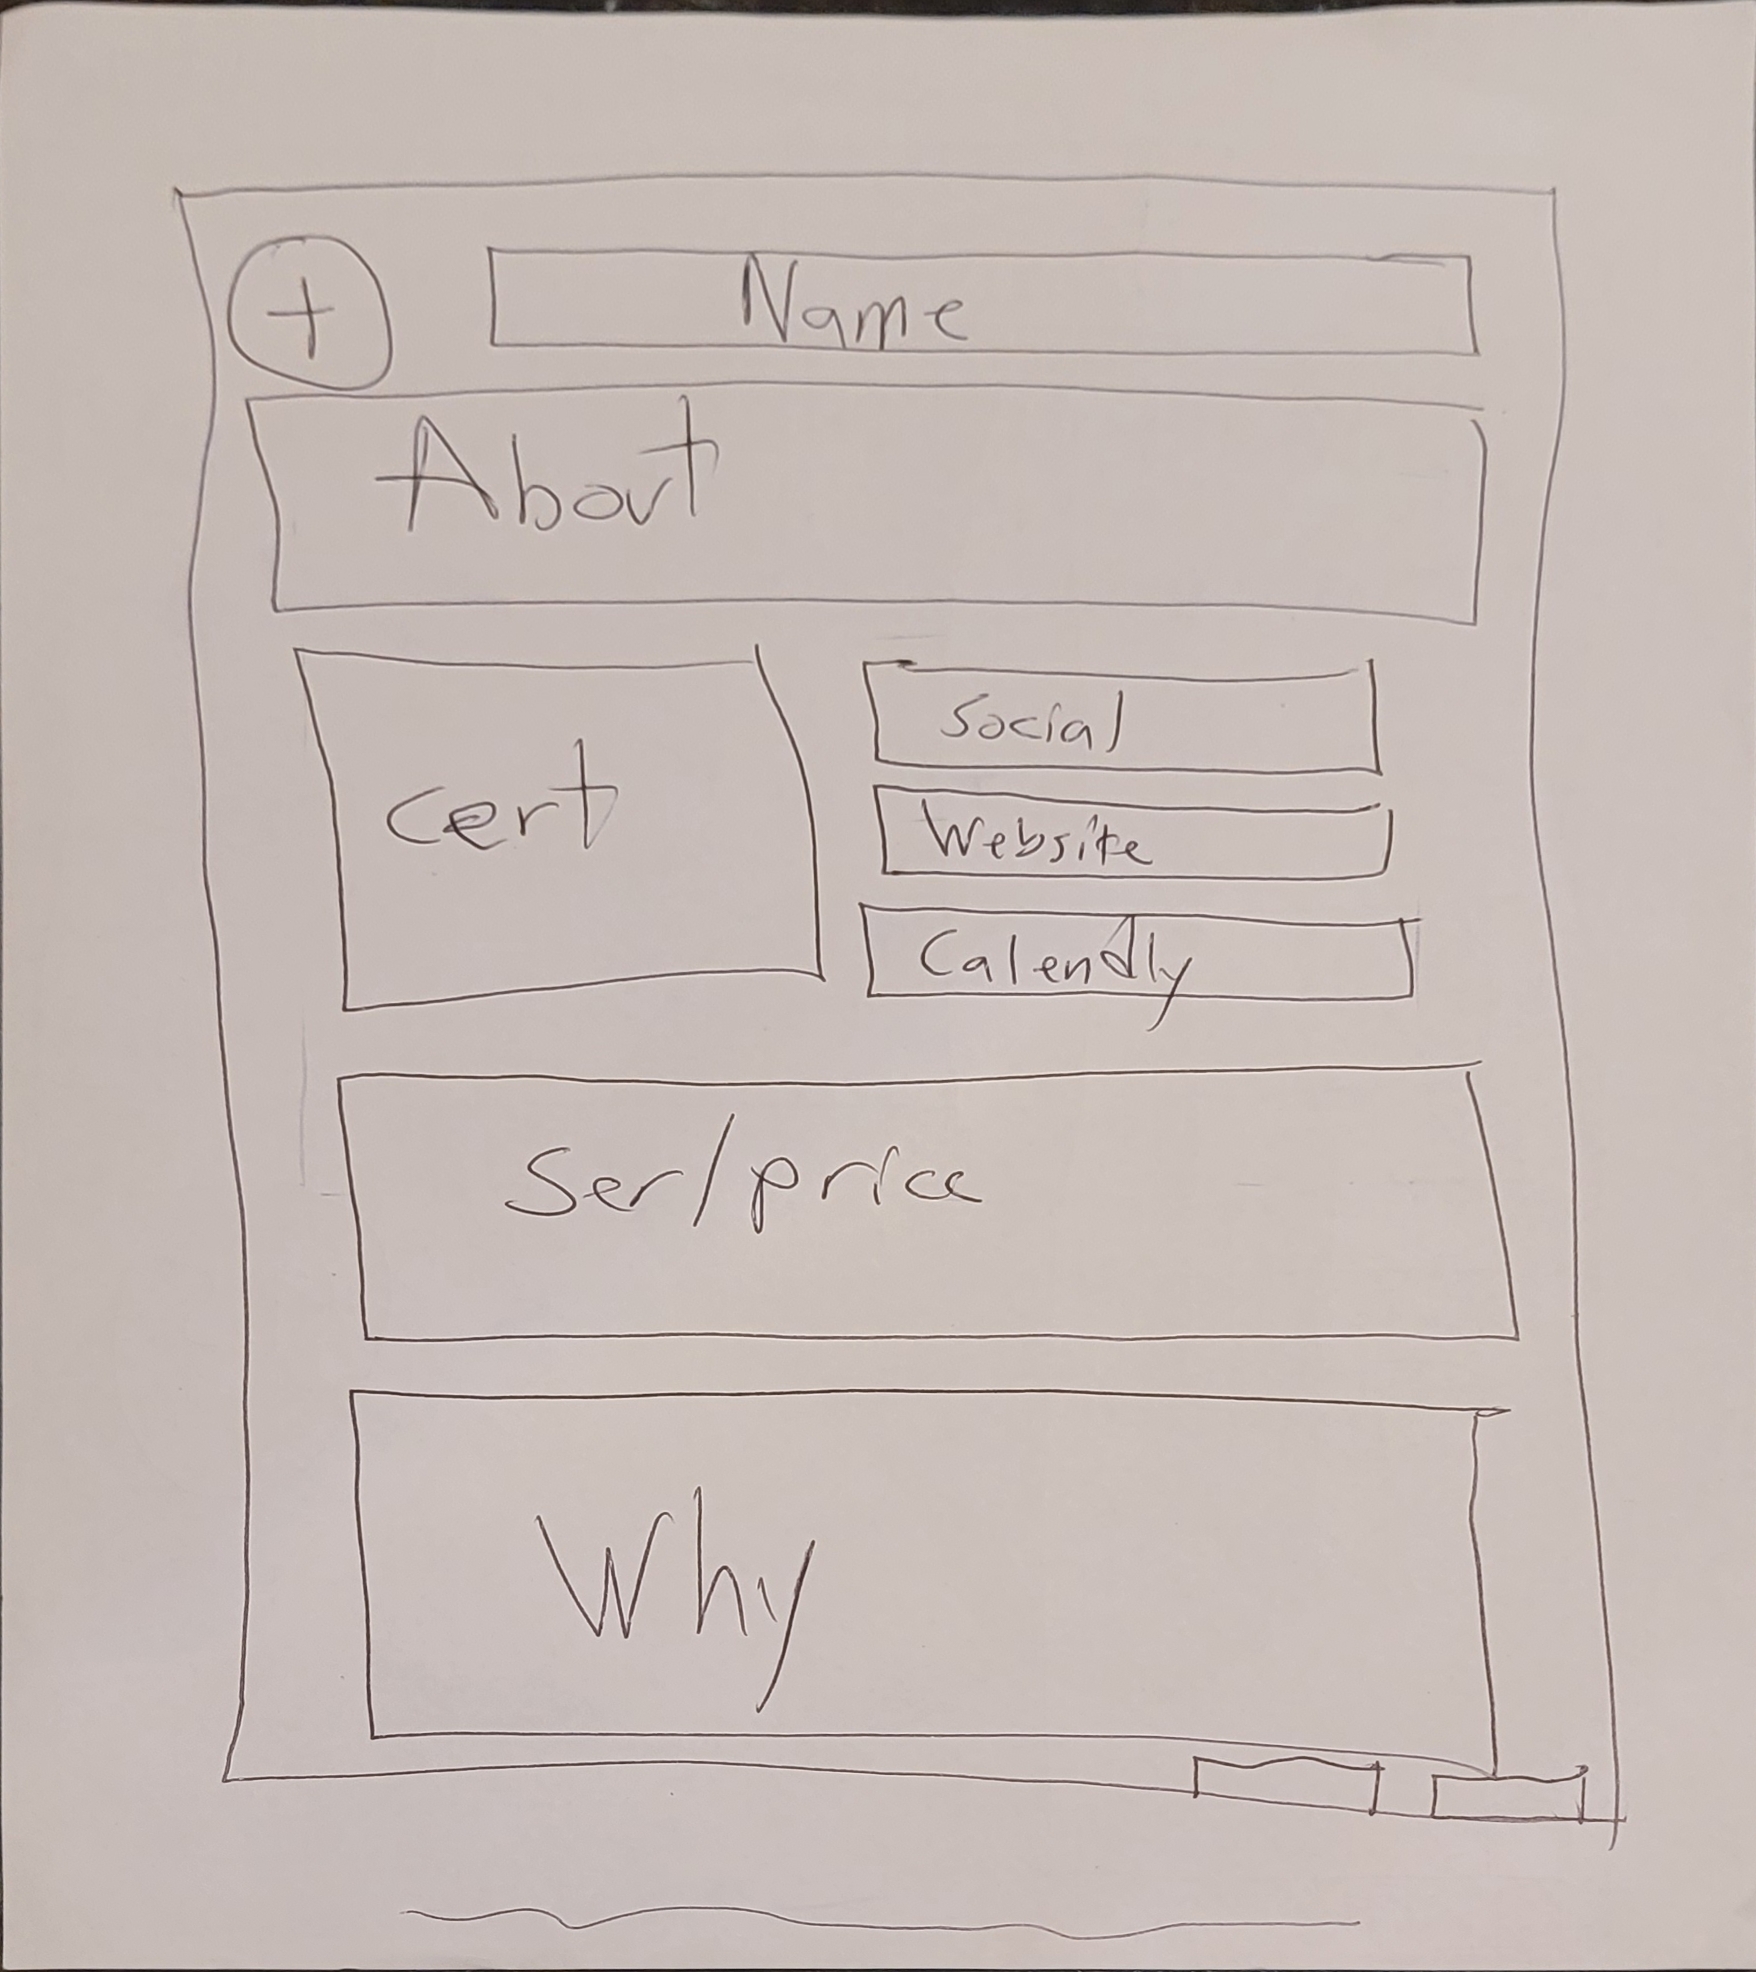 +
Name
About
Cert
Social
Website
Calendly
Ser/price
Why